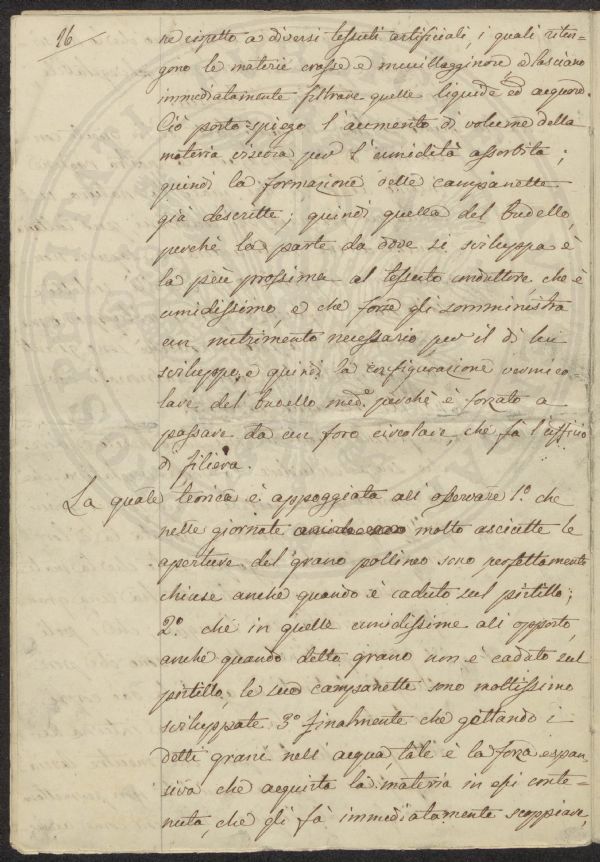 26
ne rispetto a diversi tessuti artificiali, i quali riten-
gono le materie crasse e mucillagginose, e lasciano
immediatamente filtrare quelle liquide ed acquose.
Ciò posto spiego l'aumento di volume della
materia viscosa per l'umidità assorbita;
quindi la formazione delle campanette
già descritte; quindi quella del budello,
perchè la parte da dove si sviluppa è
la più prossima al tessuto conduttore che è
umidissimo, e che forse gli somministra
un nutrimento necessario per il di lui
sviluppo, e quindi la configurazione vermico-
lare del budello med.o perchè è forzato a
passare da un foro circolare, che fà l'uffizio
di filiera.
La quale teorica è appoggiata all'osservare 1.o che
nelle giornate molto asciutte le
aperture del grano pollineo sono perfettamente
chiuse anche quando è caduto sul pistillo;
2.o che in quelle umidissime all'opposto,
anche quando detto grano non è caduto sul
pistillo, le sue campanette sono moltissimo
sviluppate 3.o finalmente che gettando i
detti grani nell'acqua, tale è la forza espan-
siva che acquista la materia in essi conte-
nuta, che gli fà immediatamente scoppiare,